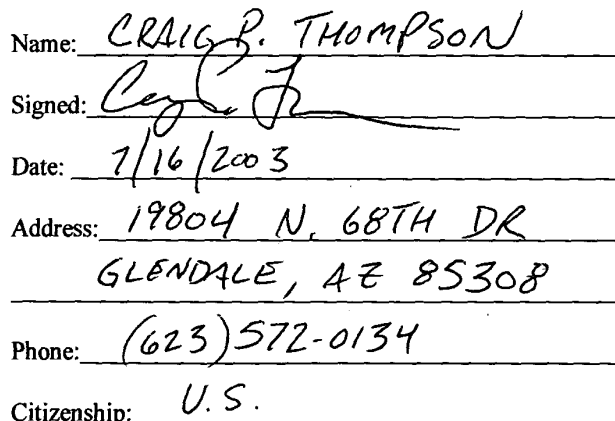 Name: CRAIG P. THOMPSON
Signed:
Date: 7/16/2003
Address: 19804 N. 68TH DR
GLENDALE, AZ 85308
Phone: (623) 572-0134
Citizenship: U.S.